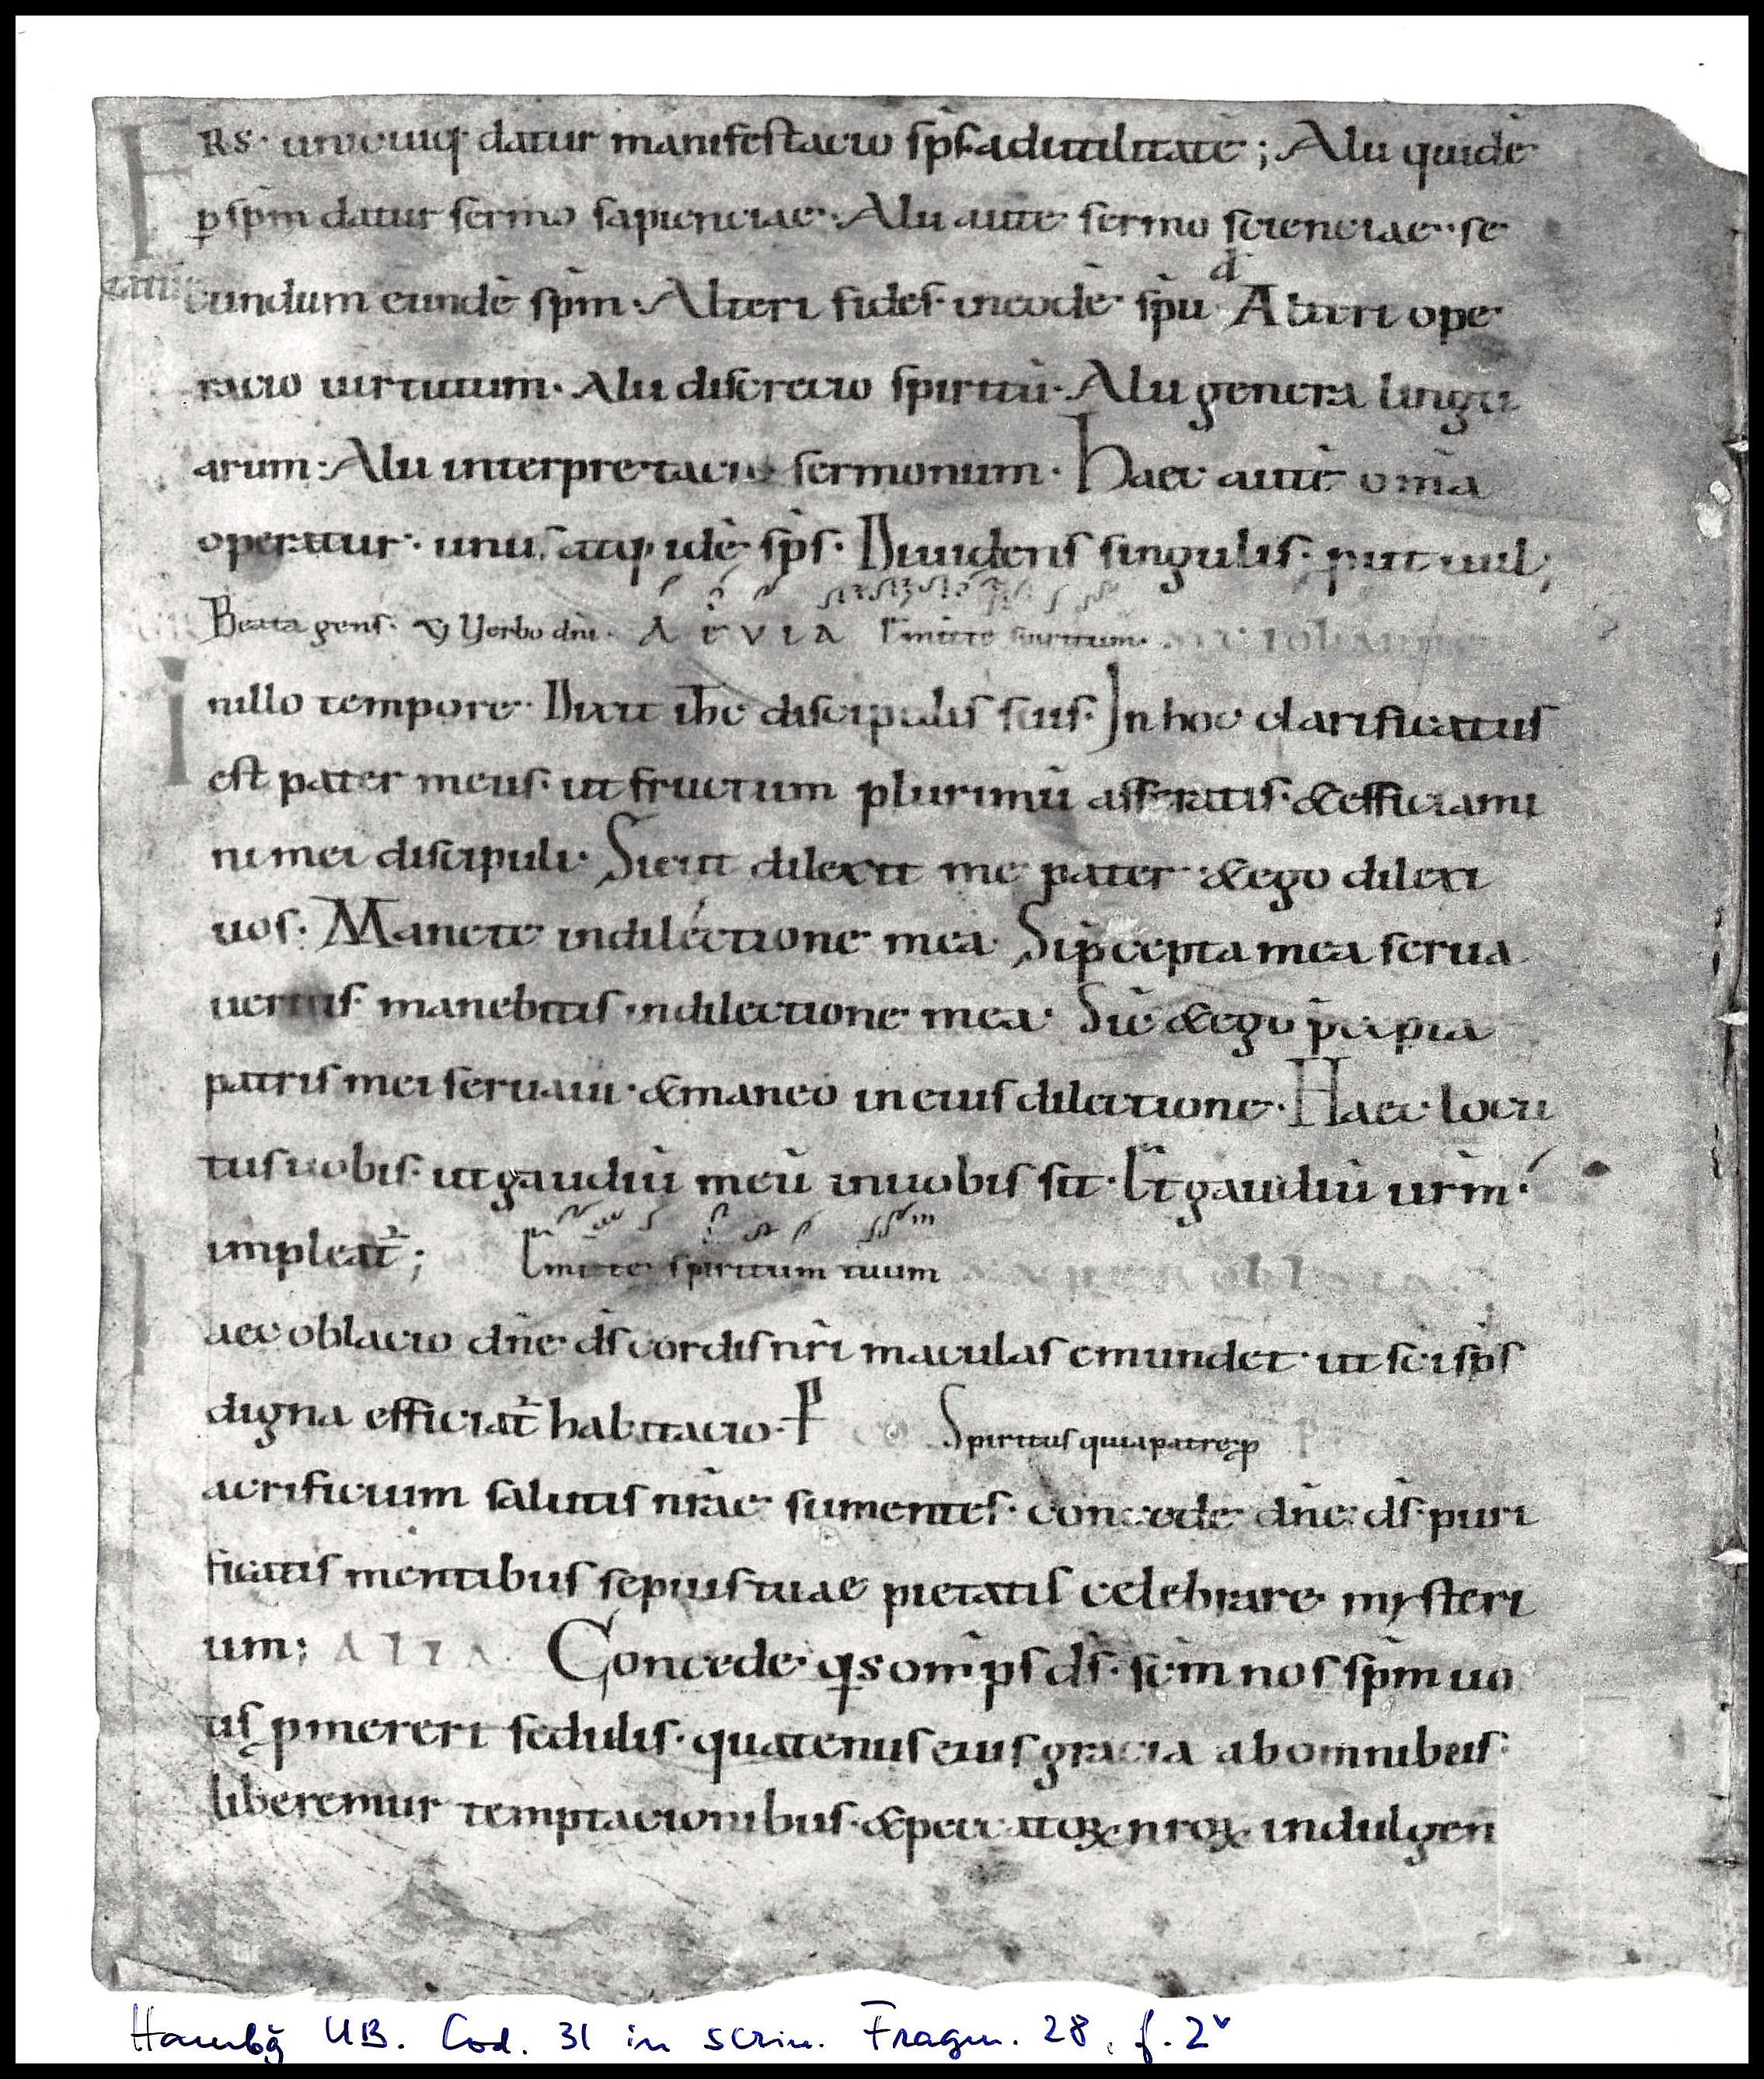 FRS· unicuiq· datur manifestacio sp̄s adutilitatē; Alii quidē
p̱ spm̄ datur sermo sapienciae· Alii autē sermo scienciae· se
cundum eundē spm̄: Alteri fides· ineodē spū d̄ Alteri ope
racio uirtutum· Alii discrecio spirituū· Alii genera lingu
arum: Alii interpretacio sermonum· Haec autē om̄ia
operatur· unus atq· idē sp̄s· Diuidens singulis· put uul;
Beata gens· V Verbo dn̄i· A E V I A Emitte spiritum·
Inillo tempore· Dixit ih̄c discipulis suis· In hoc clarificatus
est pater meus· ut fructum plurimū afferatis· &efficiami
ni mei discipuli· Sicut dilexit me pater· &ego dilexi
uos· Manete indilectione mea Si p̄cepta mea serua
ueritis manebitis indilectione mea· Sic̄ &ego p̄cepta
patris mei seruaui· &maneo in eius dilectione· Haec locu
tus uobis· ut gaudiū meū inuobis sit· Et gaudiū ur̄m·
impleat̄; Emitte spiritum tuum
aec oblacio dn̄e ds̄ cordis nr̄i maculas emundet· ut sc̄i sp̄s
digna efficiat̄ habitacio· P co Spiritus qui a patre p̱
acrificium salutis nr̄ae sumentes· concede dn̄e ds̄· puri
ficatis mentibus sepius tuae pietatis celebrare mysteri
um; ALIA· Concede· qs om̄ps ds̄· sc̄m nos spm̄ uo
tis pmereri sedulis· quatenus eius gracia abomnibus·
liberemur temptacionibus· &peccatoꝝ nr̄oꝝ indulgen
Hambg UB. Cod. 31 in scrin. Fragm. 28, f. 2v